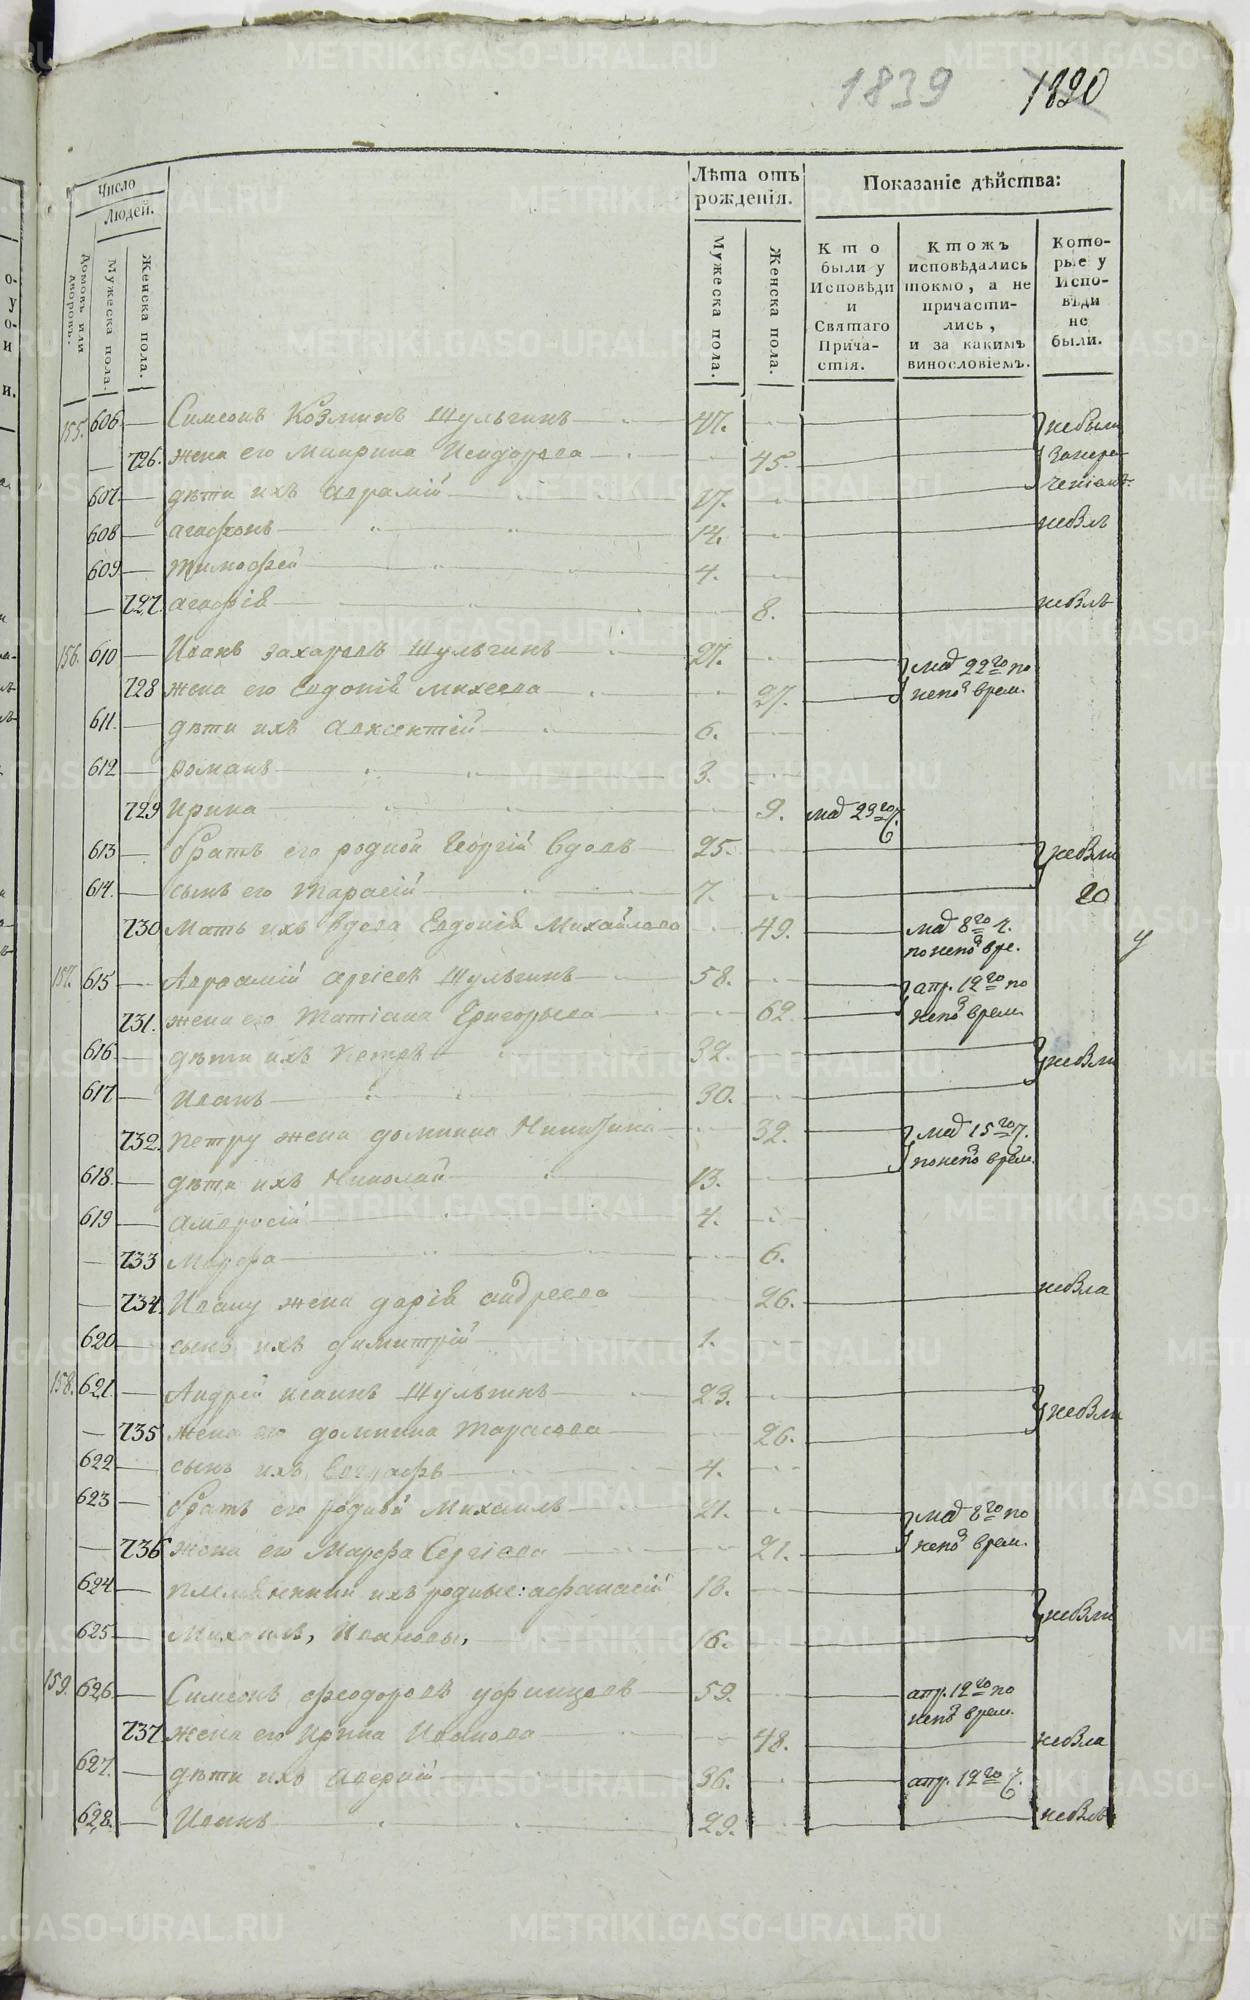 1839 1890
Число
Людей.
Лѣта отъ
рожденія.
Показаніе дѣйства:
Домовъ или
дворовъ.
Мужеска пола.
Женска пола.
Мужеска пола.
Женска пола.
Кто
были у
Исповѣди
и
Святаго
Прича-
стія.
Ктожъ
исповѣдались
токмо, а не
причасти-
лись,
и за какимъ
винословіемъ.
Кото-
рые у
Испо-
вѣди
не
были.
155. 606 Симеонъ Козминъ Шульгинъ 47. небыли
726. жена его Маврина Исидорова 45. занера-
607 дѣти ихъ Авраамій 17. ченіемъ
608 агафонъ 14. небылъ
609 тимофей 4.
727. агафія 8. небылъ
156. 610 Иванъ захаровъ Шульгинъ 27. маія 22го по
728 жена его Евдокія михеева 27. непо врем.
611. дѣти ихъ Авксентій 6.
612 романъ 3.
729 Ирина 9. маія 23го
613 братъ его родной Георгій вдовъ 25. небыли
614. сынъ его Тарасій 7. 20
730 Мать ихъ вдова Евдокія Михайлова 49. маія 8го ч.
по непо вре.
157. 615 Авраамій Сергіевъ Шульгинъ 58. апр. 12го по
731. жена его Татіана Григорьева 62. непо врем.
616 дѣти ихъ Петръ 32. небыли
617 Иванъ 30.
732. Петру жена домнина Никитина 32. маія 15го
618. дѣти ихъ Николай 13. по непо врем.
619 амвросій 4.
733 Марфа 6.
734. Ивану жена дарія андреева 26. небыла
620 сынъ ихъ димитрій 1.
158. 621. Андрей исаинъ Шульгинъ 23. небыли
735 жена его домнина тарасова 26.
622 сынъ ихъ Евграфъ 4.
623 братъ его родный Михаилъ 21. маія 8го по
736 жена его Марфа Сергіева 21. непо врем.
624 племянники ихъ родные: афанасій 18. небыли
625 Михаилъ, Ивановы, 16.
159. 626 Симеонъ феодоровъ уфинцовъ 59. апр. 12го по
непо врем.
737 жена его Ирина Иванова 48. небыла
627. дѣти ихъ Аверкій 36. апр. 12го
628. Иванъ 29. небылъ